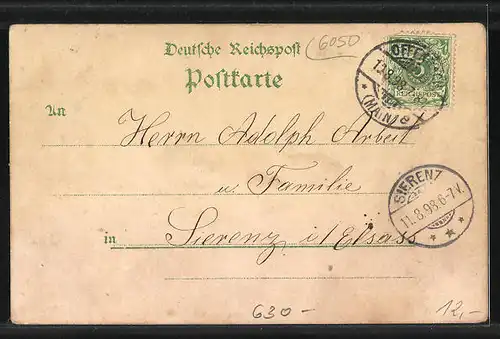 Deutsche Reichspost
6050
Postkarte
5
REICHSPOST
(MAIN)
An
Herrn Adolph Arbeit
u. Familie
SIERENZ
11.8.98.6-7V.
in Sierenz i/Elsass
630 -
12,-